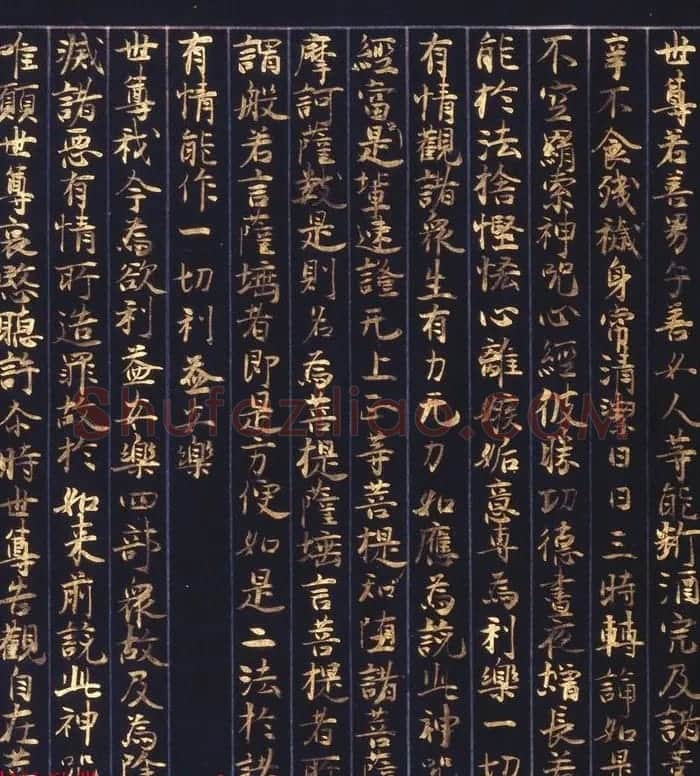 世尊若善男子善女人等能斷酒完及諸葷
辛不食残穢身常清潔日日三時轉誦如是
不空羂索神咒心經彼勝功德晝夜增長善
能於法捨慳悋心離嫉妬意專為利樂一切
有情觀諸衆生有力无力如應為說此神咒
經當是輩速證无上正等菩提知随諸菩薩
摩訶薩數是則名為菩提薩埵言菩提者所
謂般若言薩埵者即是方便如是二法於諸
有情能作一切利益安樂
世尊我今為欲利益安樂四部衆故及為除
滅諸惡有情所造罪故於如来前說此神咒
唯願世尊哀愍聽許尒時世尊告觀自在菩
shufaziliao.com